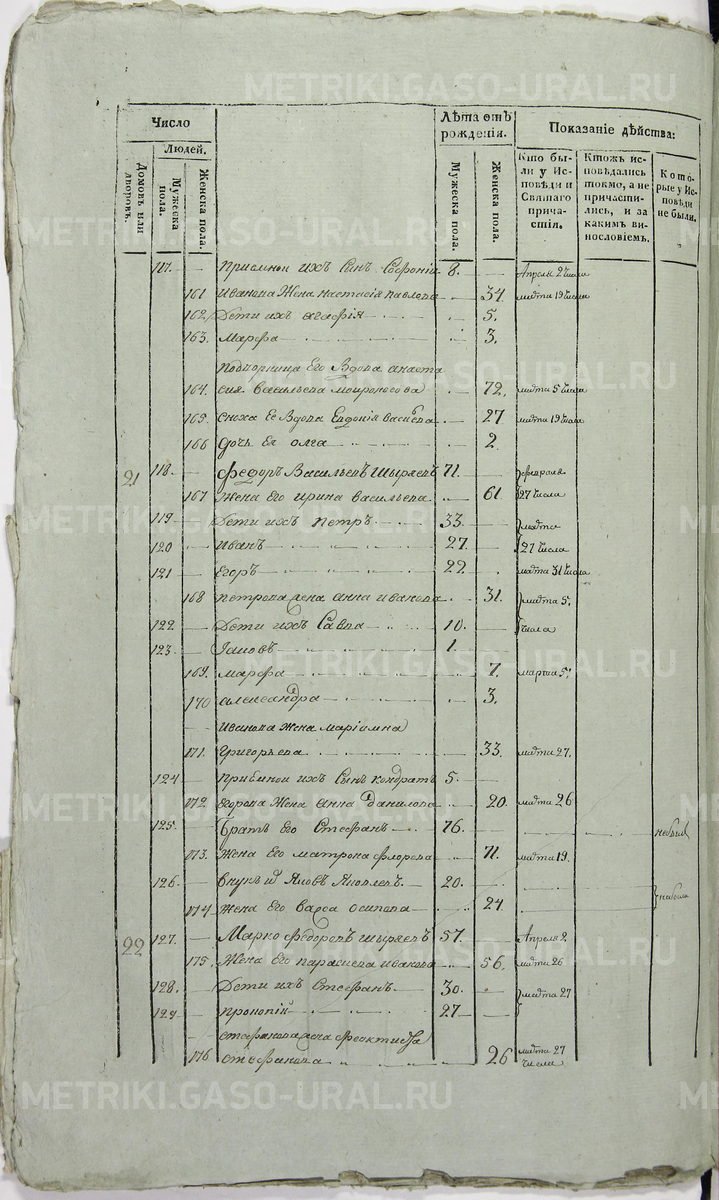 METRIKI.GASO-URAL.RU
Число
Людей.
Домовъ или дворовъ.
Мужеска пола.
Женска пола.
Лѣта отъ рожденія.
Мужеска пола.
Женска пола.
Показаніе дѣйства:
Кто бы-
ли у Ис-
повѣди и
Святаго
прича-
стія.
Ктожъ ис-
повѣдались
токмо, а не
причасти-
лись, и за
какимъ ви-
нословіемъ.
Кото-
рые у Ис-
повѣди
не были.
117. — Приемной ихъ Сынъ Софроній 8. — Апреля 2 числа
161 Иванова Жена Настасія Павлова 34. марта 19 числа
162 Дети ихъ Агафія 5.
163. Марфа 3.
Его Вдова Анаста
164. сия Васильева 72. марта 5 числа
165. Сноха Ее Вдова Евдокія 27 марта 19 числа
166 Дочь Ея Олга 2.
21 118. — Федоръ Васильевъ Шыряевъ 71. февраля
167 Жена Его Ирина Васильева 61 27 числа
119 — Дети ихъ Петръ 33. — марта
120 — Иванъ 27. — 27 числа
121 — Егоръ 22 марта 31 числа
168 Петрова жена Анна Иванова 31. марта 5.
122. — Дети ихъ Савва 10. — числа
123. — Іаковъ 1.
169. Марфа 7. марта 5.
170 Александра 3.
Иванова Жена Маріамна
171. Григорьева 33. марта 27.
124 — Приемной ихъ Сынъ Кондратъ 5. —
172. Егорова Жена Анна Данилова 20. марта 26
125. — Братъ Его Стефанъ 76. — небылъ
173. Жена Его Матрона Флорова 71. марта 19.
126. — Внукъ Яковлевъ 20. —
174 Жена Его Васса Осипова 24. небыли
22 127. — Марко Федоровъ Шыряевъ 57. Апреля 2.
175. Жена Его Параскева Иванова 56. марта 26
128. — Дети ихъ Стефанъ 30. — марта 27
129 — Прокопій 27 —
Стефанова жена Феоктиста
176 Стефанова 26 марта 27
числа